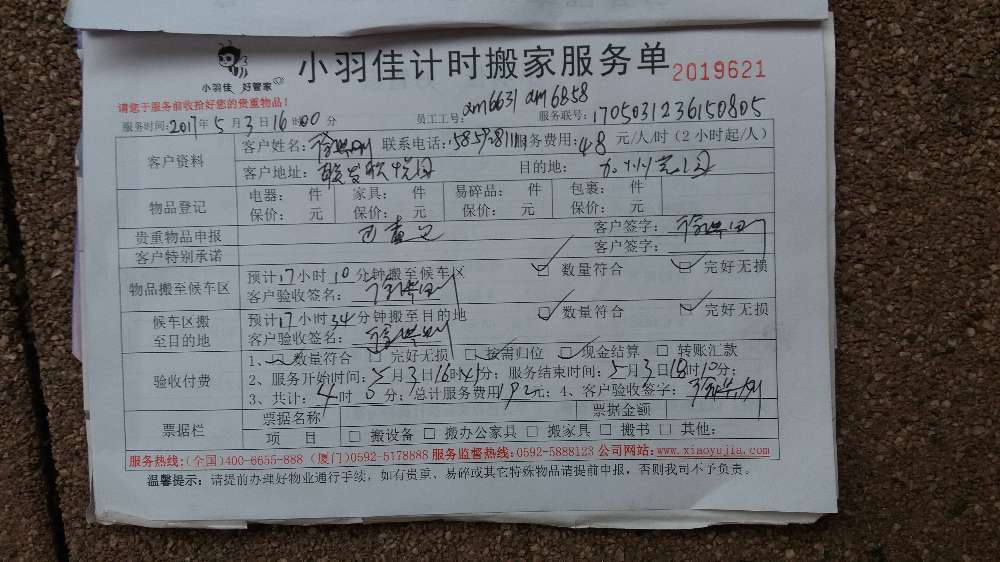 小羽佳 好管家
小羽佳计时搬家服务单 2019621
请您于服务前收拾好您的贵重物品!
服务时间: 2017年5月3日16时00分 员工工号: am6631 am6858 服务联号: 170503123615 0805
客户资料 客户姓名: 联系电话: 服务费用: 48 元/人/时 (2小时起/人)
客户地址: 目的地:
物品登记 电器: 件 家具: 件 易碎品: 件 包裹: 件
保价: 元 保价: 元 保价: 元 保价: 元
贵重物品申报 客户签字:
客户特别承诺 客户签字:
物品搬至候车区 预计17小时10分钟搬至候车区 数量符合 完好无损
客户验收签名:
候车区搬至目的地 预计17小时34分钟搬至目的地 数量符合 完好无损
客户验收签名:
验收付费 1、 数量符合 完好无损 按需归位 现金结算 转账汇款
2、服务开始时间: 5月3日16时 分; 服务结束时间: 5月3日18时10分;
3、共计: 4时0分; 总计服务费用192元; 4、客户验收签字:
票据栏 票据名称 票据金额
项 目 搬设备 搬办公家具 搬家具 搬书 其他:
服务热线:(全国)400-6655-888 (厦门)0592-5178888 服务监督热线:0592-5888123 公司网站:www.xiaoyujia.com
温馨提示: 请提前办理好物业通行手续, 如有贵重、易碎或其它特殊物品请提前申报, 否则我司不予负责。